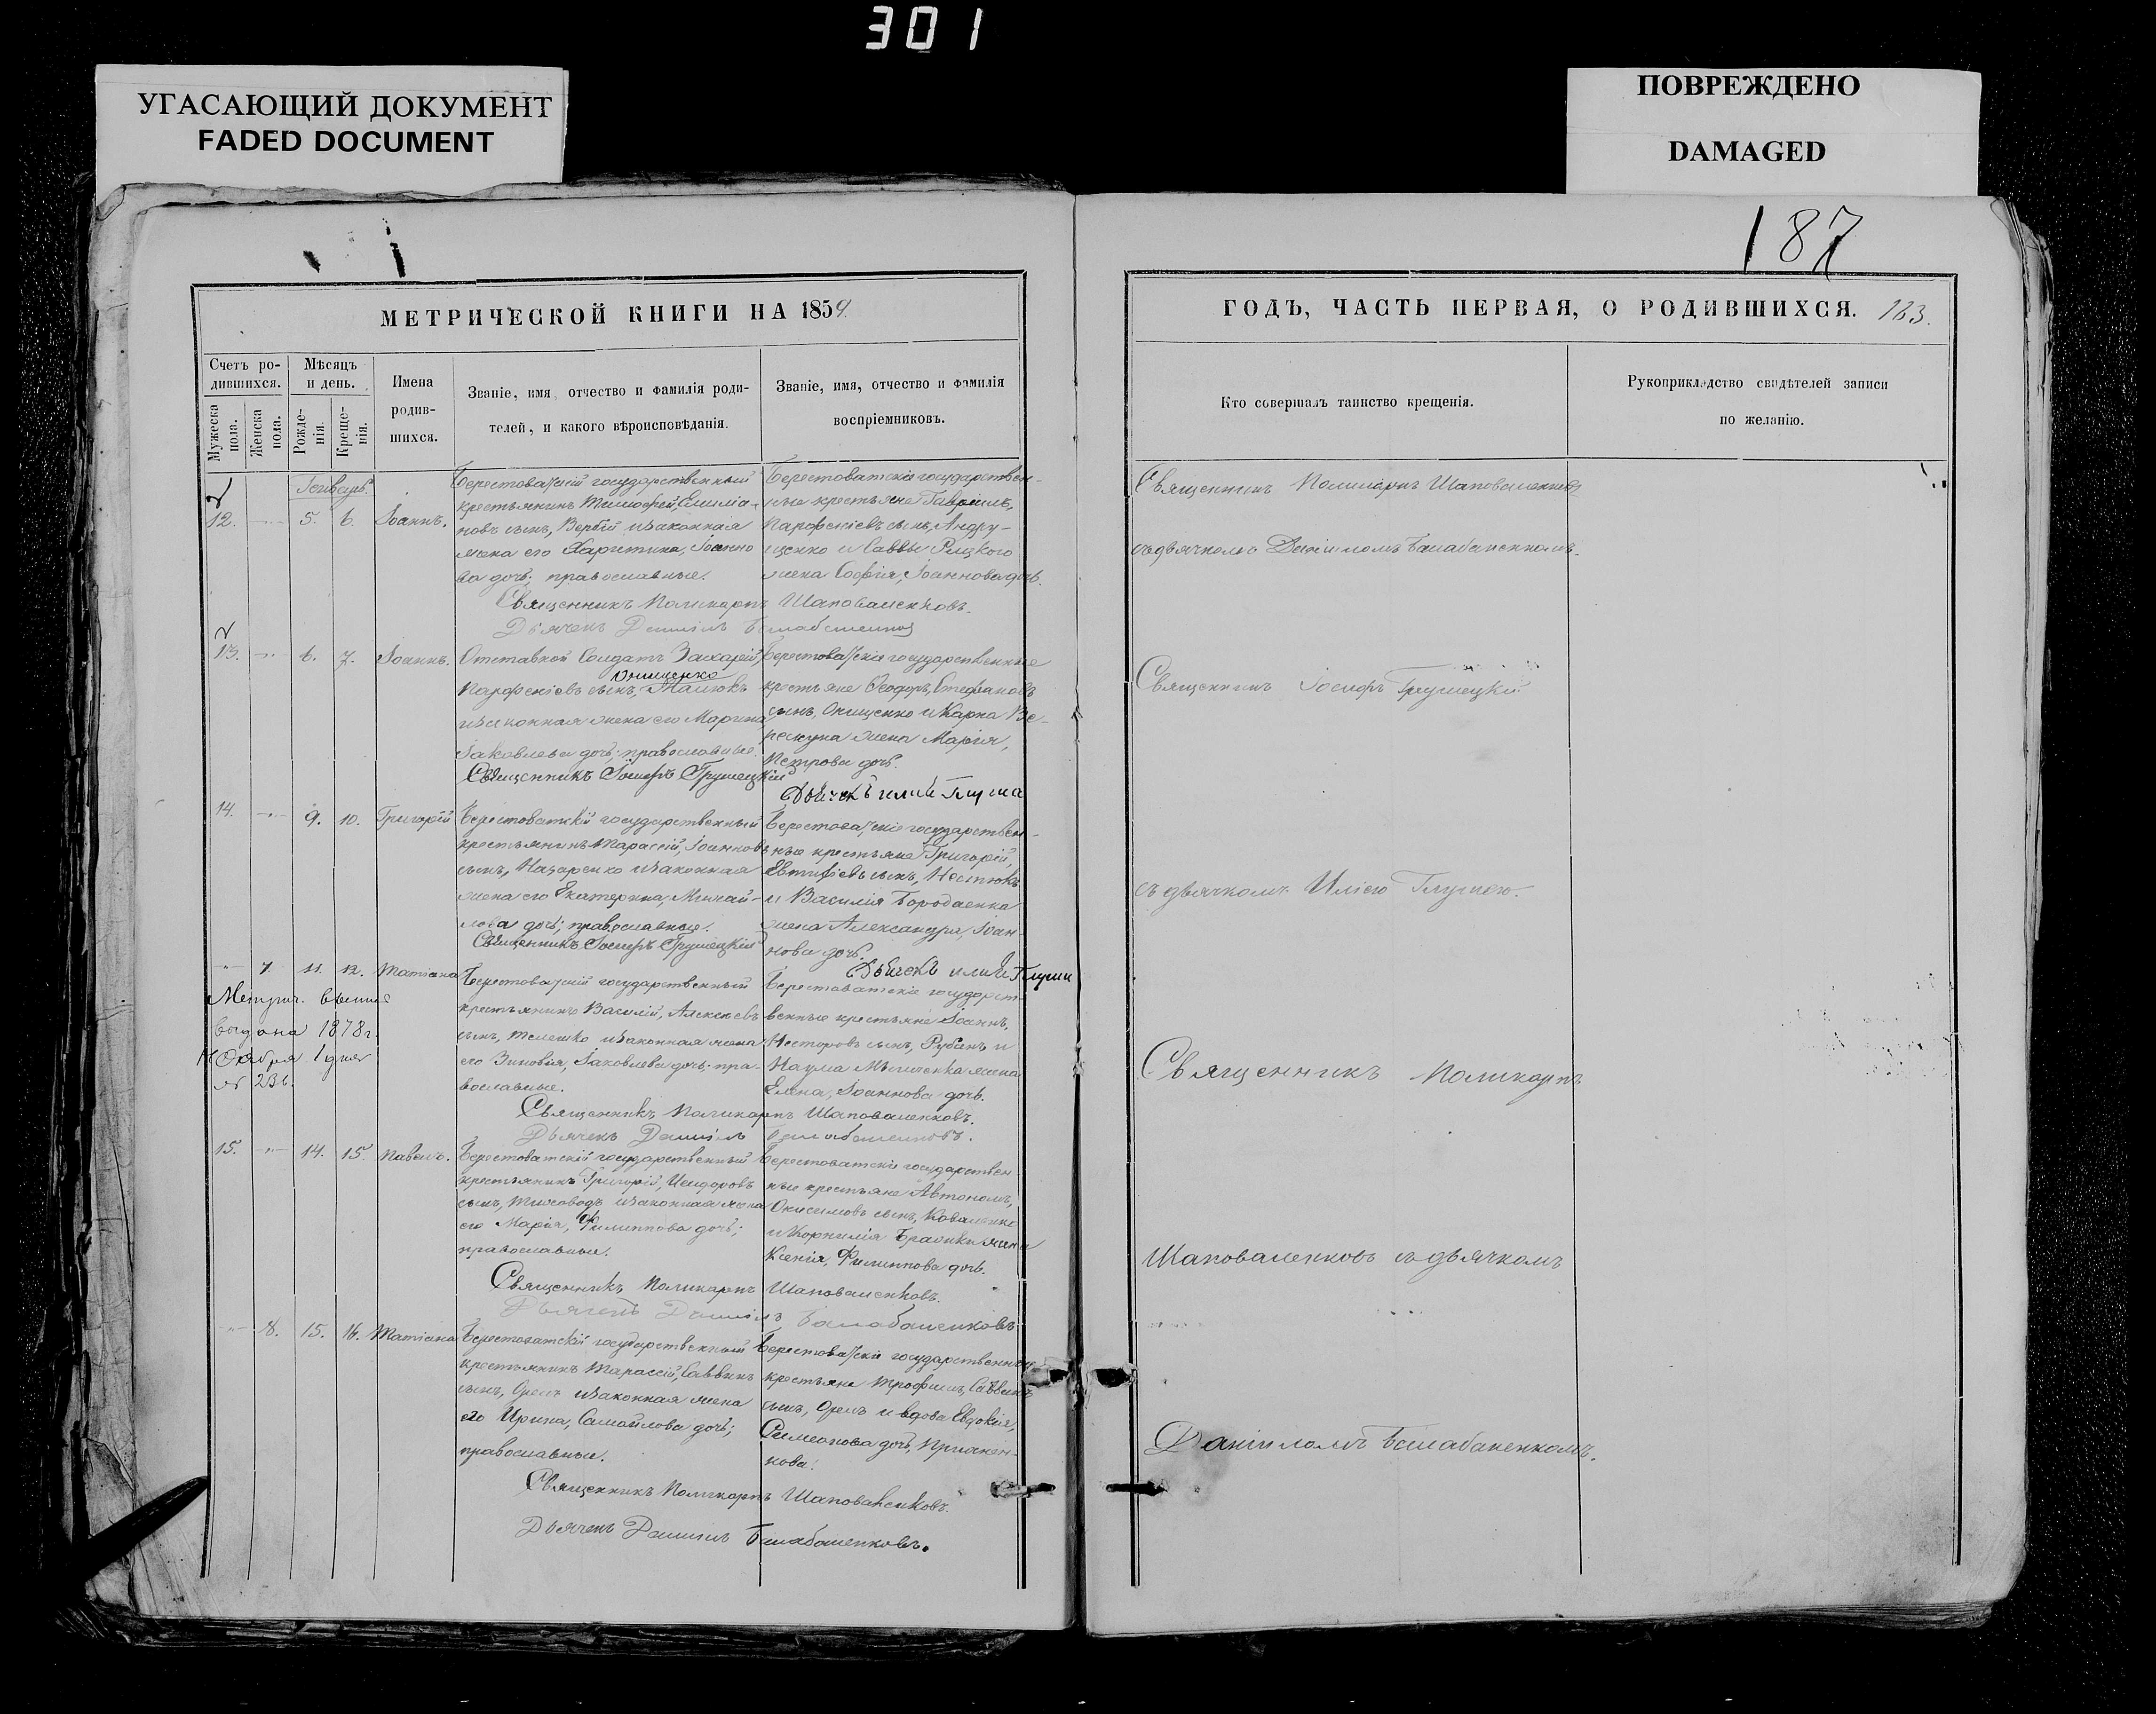 301
УГАСАЮЩИЙ ДОКУМЕНТ
FADED DOCUMENT
ПОВРЕЖДЕНО
DAMAGED
187
МЕТРИЧЕСКОЙ КНИГИ НА 1859.
Счетъ ро-
дившихся.
Мужеска пола.
Женска пола.
Мѣсяцъ
и день.
Рожде-
нія.
Креще-
нія.
Имена
родив-
шихся.
Званіе, имя, отчество и фамилія роди-
телей, и какого вѣроисповѣданія.
Званіе, имя, отчество и фамилія
воспріемниковъ.
Генварь.
12. 5. 6. Іоаннъ.
Берестоватскій государственный
крестьянинъ Тимофей, Емиліа-
новъ сынъ, Вербій и законная
жена его Харитина, Іоанно
ва дочь; православные.
Берестоватскіе государствен-
ные крестьяне Гавріилъ,
Парфеніевъ сынъ, Андру-
щенко и Саввы Рицкого
жена Софія, Іоаннова дочь.
Священникъ Поликарпъ Шаповаленковъ.
Дьячекъ Даніилъ
13. 6. 7. Іоаннъ.
Отставной Солдатъ Захарій,
Онищенко
Парфеніевъ сынъ,
и законная жена его Марина
Іаковлева дочь; православные.
Священникъ Іосифъ Грушецкій
Берестоватскіе государственные
крестьяне Феодоръ, Стефановъ
сынъ, Онищенко и Карпа Ве-
рескуна жена Марія,
Петрова дочь.
Дьячекъ Илія Глуша
14. 9. 10. Григорій
Берестоватскій государственный
крестьянинъ Тарасій, Іоанновъ
сынъ, Назаренко и законная
жена его Екатерина, Михай-
лова дочь; православные.
Священникъ Іосифъ Грушецкій
Берестоватскіе государствен-
ные крестьяне Григорій,
Евтихіевъ сынъ,
и Василія Бородаенка
жена Александра, Іоан-
нова дочь.
Дьячекъ Илія Глуша
7. 11. 12. Татіана
Метрич.
выдана 1878 г.
Октября 1 дня
№ 236.
Берестоватскій государственный
крестьянинъ Василій, Алексѣевъ
сынъ, Телешко и законная жена
его Зиновія, Іаковлева дочь; пра-
вославные.
Берестоватскіе государст-
венные крестьяне Іоаннъ,
Несторовъ сынъ, Рубанъ и
Наума жена
Елена, Іоаннова дочь.
Священникъ Поликарпъ Шаповаленковъ.
Дьячекъ Даніилъ Балабаненковъ.
15. 14. 15. Павелъ.
Берестоватскій государственный
крестьянинъ Григорій, Исидоровъ
сынъ, и законная жена
его Марія, Филиппова дочь;
православные.
Берестоватскіе государствен
ные крестьяне Автономъ,
Онисимовъ сынъ, Коваленко
и Корнилія жена
Ксенія, Филиппова дочь.
Священникъ Поликарпъ Шаповаленковъ.
Дьячекъ Даніилъ Балабаненковъ
8. 15. 16. Татіана
Берестоватскій государственный
крестьянинъ Тарасій, Саввинъ
сынъ, Орелъ и законная жена
его Ирина, Самойлова дочь;
православные.
Берестоватскіе государственные
крестьяне Трофимъ, Саввинъ
сынъ, Орелъ и вдова Евдокія,
Симеонова дочь,
Священникъ Поликарпъ Шаповаленковъ.
Дьячекъ Даніилъ Балабаненковъ.
ГОДЪ, ЧАСТЬ ПЕРВАЯ, О РОДИВШИХСЯ. 163.
Кто совершалъ таинство крещенія.
Рукоприкладство свидѣтелей записи
по желанію.
Священникъ Поликарпъ Шаповаленковъ
съ дьячкомъ Даніиломъ Балабаненкомъ.
Священникъ Іосифъ Грушецкій
съ дьячкомъ Иліею Глушею.
Священникъ Поликарпъ
Шаповаленковъ съ дьячкомъ
Даніиломъ Балабаненкомъ.